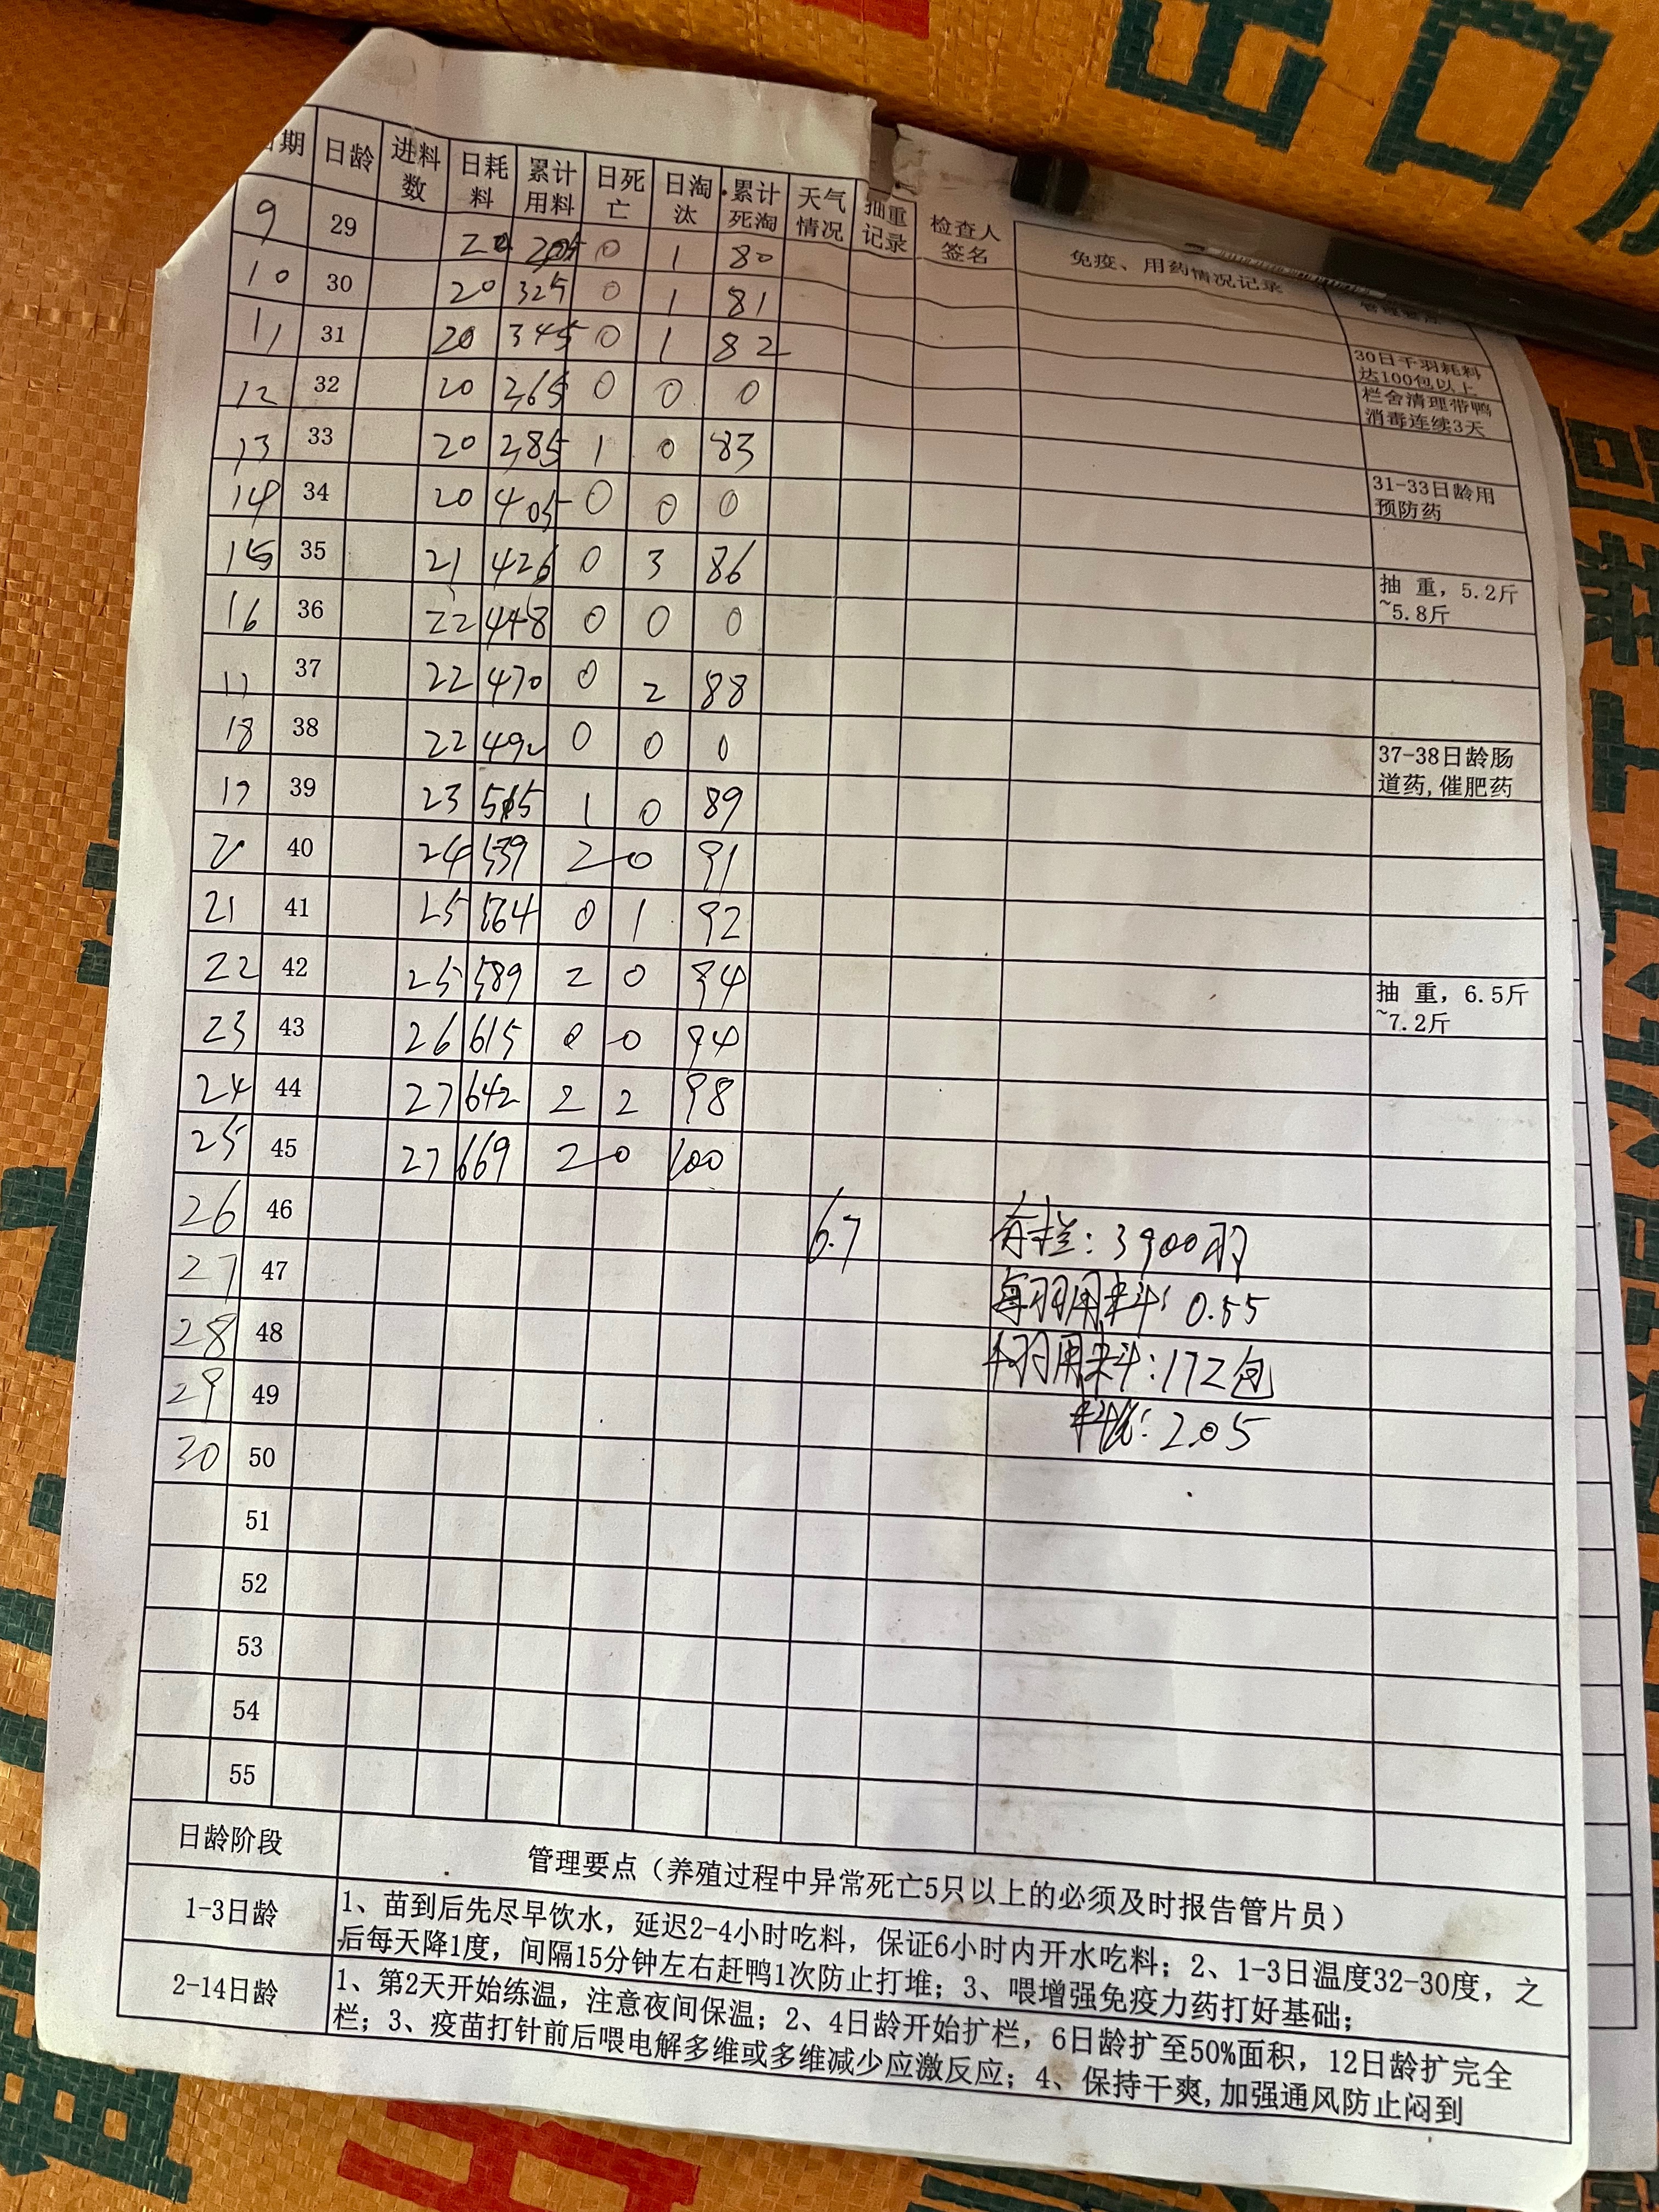 日期 日龄 进料数 日耗料 累计用料 日死亡 日淘汰 累计死淘 天气情况 抽重记录 检查人签名 免疫、用药情况记录
9 29 20 305 0 1 80
10 30 20 325 0 1 81
11 31 20 345 0 1 82 30日千羽耗料达100包以上
12 32 20 365 0 0 0 栏舍清理带鸭消毒连续3天
13 33 20 385 1 0 83
14 34 20 405 0 0 0 31-33日龄用预防药
15 35 21 426 0 3 86
16 36 22 448 0 0 0 抽 重，5.2斤~5.8斤
17 37 22 470 0 2 88
18 38 22 492 0 0 0
19 39 23 515 1 0 89 37-38日龄肠道药,催肥药
20 40 24 539 2 0 91
21 41 25 564 0 1 92
22 42 25 589 2 0 94
23 43 26 615 0 0 94 抽 重，6.5斤~7.2斤
24 44 27 642 2 2 98
25 45 27 669 2 0 100
26 46 6.7 存栏：3900羽
27 47 每羽用料：0.55
28 48 千羽用料：172包
29 49 料比：2.05
30 50
51
52
53
54
55
日龄阶段 管理要点（养殖过程中异常死亡5只以上的必须及时报告管片员）
1-3日龄 1、苗到后先尽早饮水，延迟2-4小时吃料，保证6小时内开水吃料；2、1-3日温度32-30度，之
后每天降1度，间隔15分钟左右赶鸭1次防止打堆；3、喂增强免疫力药打好基础；
2-14日龄 1、第2天开始练温，注意夜间保温；2、4日龄开始扩栏，6日龄扩至50%面积，12日龄扩完全
栏；3、疫苗打针前后喂电解多维或多维减少应激反应；4、保持干爽,加强通风防止闷到